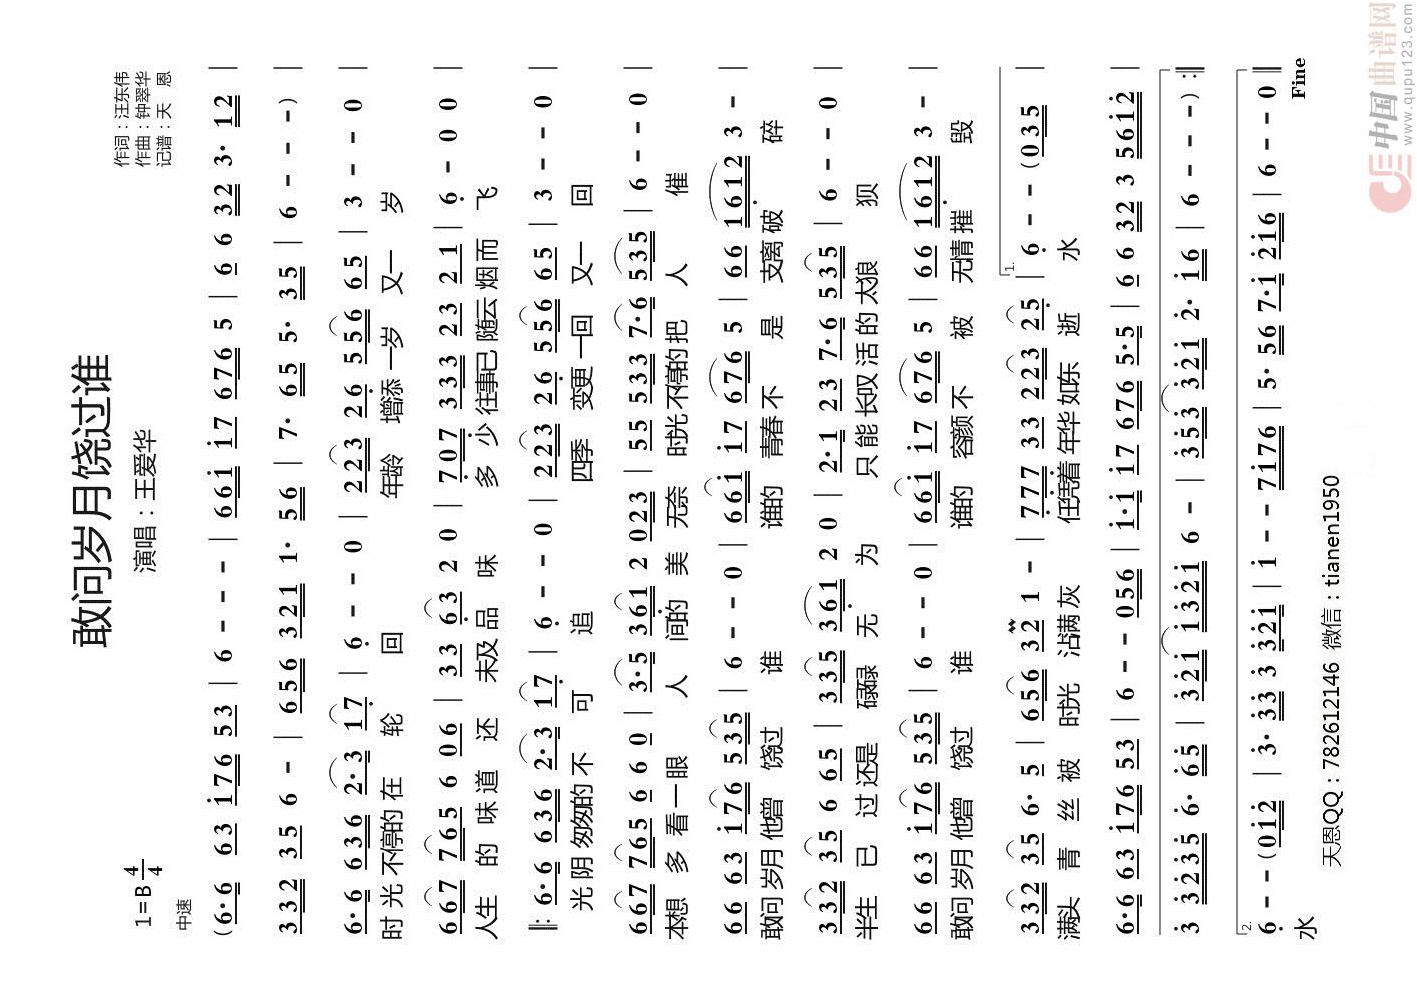 敢问岁月饶过谁
演唱：王爱华
作词：汪东伟
作曲：钟翠华
记谱：天 恩
1=B 4/4
中速
(6·6 63 i76 53 | 6 - - - | 66i i7 676 5 | 6 6 32 3· 12 |
332 35 6 - | 656 321 1· 56 | 7· 65 5· 35 | 6 - - - ) |
6·6 636 2·3 17 | 6 - - 0 | 223 26 556 65 | 3 - - 0 |
时光 不停的 在 轮 回 年龄 增添 一岁 又一 岁
667 765 6 06 | 33 63 2 0 | 707 333 23 21 | 6 - 0 0 |
人生 的 味道 还 未及 品 味 多 少 往事已 随云 烟而 飞
‖: 6·6 636 2·3 17 | 6 - - 0 | 223 26 556 65 | 3 - - 0 |
光阴 匆匆的 不 可 追 四季 变更 一回 又一 回
667 765 6 6 0 | 3·5 361 2 023 | 55 533 7·6 535 | 6 - - 0 |
本想 多 看 一 眼 人 间的 美 无奈 时光 不停的 把 人 催
66 63 i76 535 | 6 - - 0 | 66i i7 676 5 | 66 1612 3 - |
敢问 岁月 他曾 饶过 谁 谁的 青春 不 是 支离 破 碎
332 35 6 65 | 335 361 2 0 | 2·1 23 7·6 535 | 6 - - 0 |
半生 已 过 还是 碌碌 无 为 只 能 长叹 活 的 太狼 狈
66 63 i76 535 | 6 - - 0 | 66i i7 676 5 | 66 1612 3 - |
敢问 岁月 他曾 饶过 谁 谁的 容颜 不 被 无情 摧 毁
1.
332 35 6· 5 | 656 32 1 - | 777 33 223 25 | 6 - - (035 |
满头 青 丝 被 时光 沾满 灰 任凭着 年华 如东 逝 水
6·6 63 i76 53 | 6 - - 056 | i·i i7 676 5·5 | 6 6 32 3 561̇2̇ |
3̇ 3̇2̇3̇5̇ 6· 65 | 3̇2̇i i̇3̇2̇i 6 - | 3̇5̇3̇ 3̇2̇i 2̇· i6 | 6 - - - ) :‖
2.
6 - - (0i2̇ | 3̇· 3̇3̇ 3̇ 3̇2̇i | i - - 7i76 | 5· 56 7·i 2̇i6 | 6 - - 0 ‖
水
Fine
天恩QQ：782612146 微信：tianen1950
中国曲谱网
www.qupu123.com